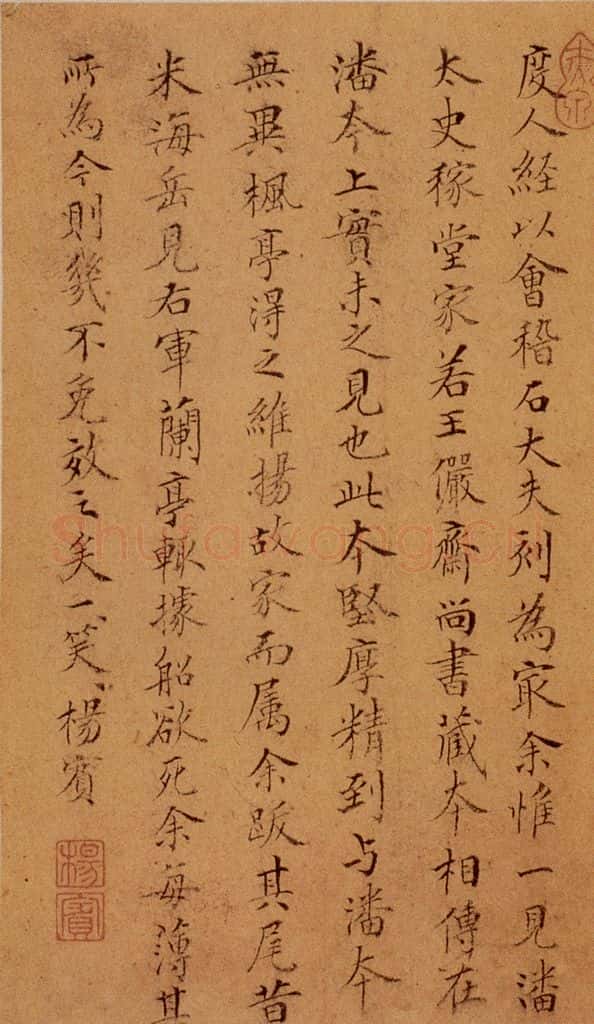 度人経以會稽石大夫刻為冣余惟一見潘
太史稼堂家若王儼齋尚書藏夲相傳在
潘夲上實未之見也此夲堅厚精到与潘夲
無異楓亭得之維揚故家而属余跋其尾昔
米海岳見右軍蘭亭輙據船欲死余每薄其
所為今則幾不免效之矣一笑楊賓
楊賓
shufawang.cn